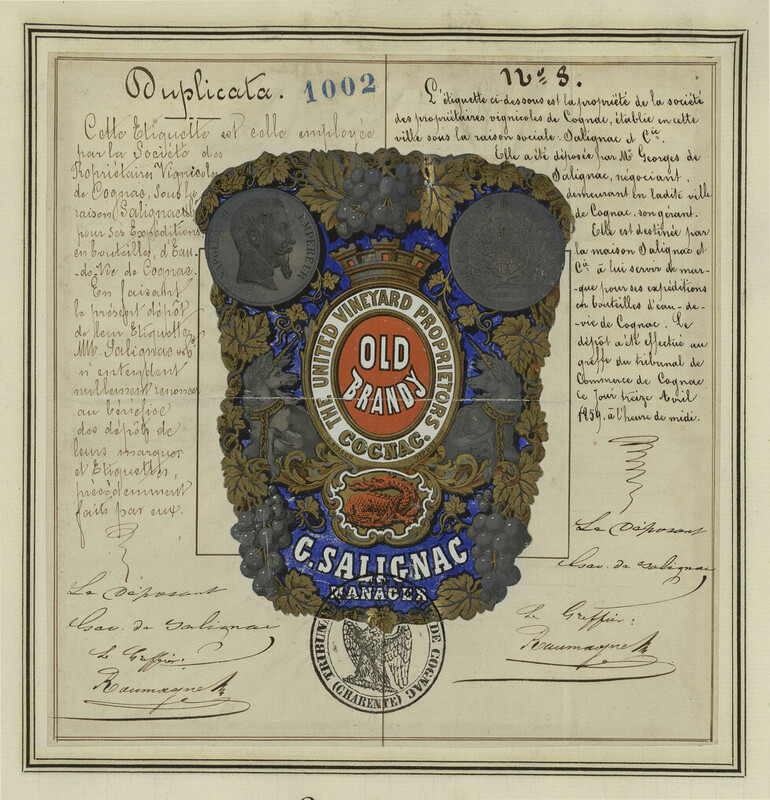 Duplicata.
1002
Cette Etiquette est celle employée
par la Société des
Propriétaires Vignicoles
de Cognac, sous la
raison Salignac &
pour ses Expéditions
en bouteilles, d'Eau-
de-Vie de Cognac.
En faisant
le présent dépôt
de leur Etiquette,
MM. Salignac & Cie
n'entendent
nullement renoncer
au bénéfice
des dépôts de
leurs marques
et Etiquettes,
précédemment
faits par eux.
Le Déposant
Geo. de Salignac
Le Greffier:
Raumagne
No. 8.
L'étiquette ci-dessous est la propriété de la société
des propriétaires vignicoles de Cognac, établie en cette
ville sous la raison sociale Salignac et Cie.
Elle a été déposée par Mr Georges de
Salignac, négociant,
demeurant en ladite ville
de Cognac, son gérant.
Elle est destinée par
la maison Salignac et
Cie à lui servir de mar-
que pour ses expéditions
en bouteilles d'eau-de-
vie de Cognac. Le
dépôt a été effectué au
greffe du tribunal de
Commerce de Cognac
ce jour treize Avril
1859, à l'heure de midi.
Le Déposant
Geo. de Salignac
Le Greffier:
Raumagne
EMPEREUR
THE UNITED VINEYARD PROPRIETORS
OLD
BRANDY
COGNAC.
C. SALIGNAC
MANAGER
TRIBUNAL DE COGNAC
(CHARENTE)